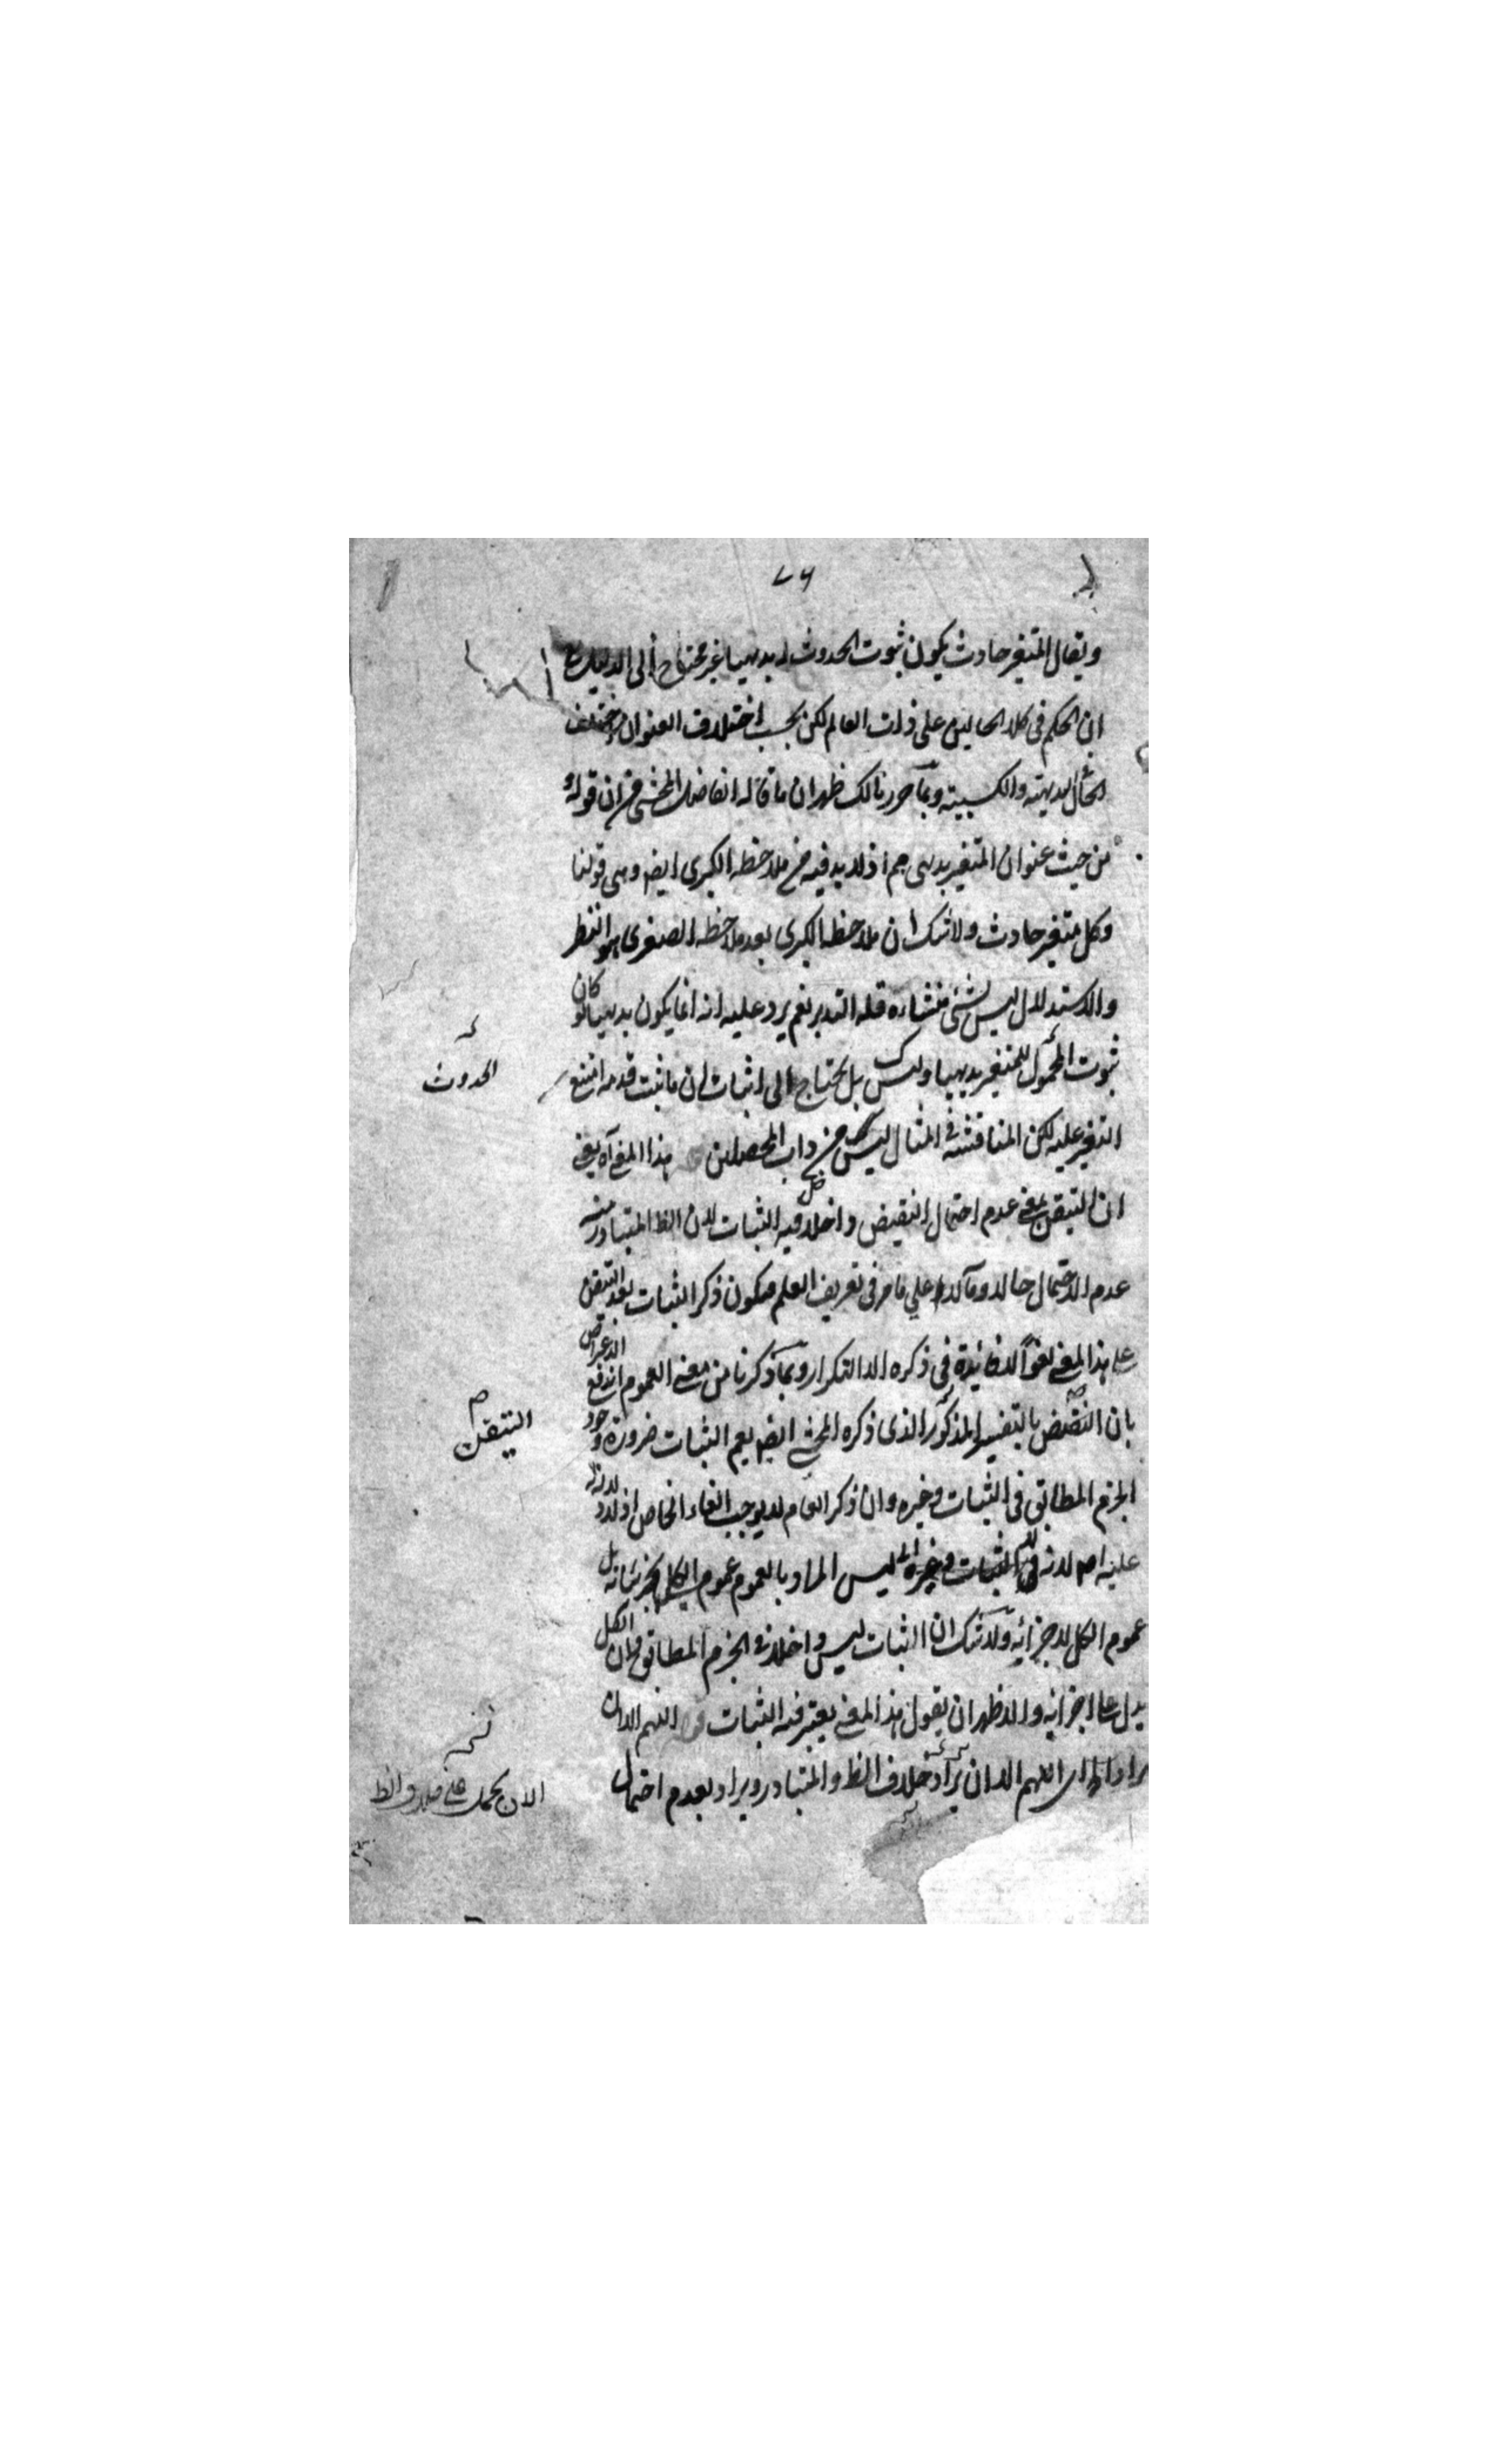 ٧٦
ويقال المتغير حادث يكون ثبوت الحدوث له بديهيا غير محتاج الى الدليل مع
ان الحكم في كلا الحالين على ذات العالم لكن بحسب اختلاف العنوان يختلف
الحال بديهته والكسبية وبما حررنا لك ظهر ان ما قاله الفاضل المحشي من ان قوله
من حيث عنوان المتغير بديهي مم اذ لا بد فيه من ملاحظه الكبرى ايض وهي قولنا
وكل متغير حادث ولا شك ان ملاحظه الكبرى بعد ملاحظه الصغرى هو النظر
والاستدلال ليس بشئ منشاءه قله التدبر نعم يرد عليه انه انما يكون بديهيا لو كان
ثبوت المحمول للمتغير بديهيا وليس كك بل يحتاج الى اثبات ان ما ثبت قدمه امتنع
الحدوث
التغير عليه لكن المناقشة في المثال ليس من داب المحصلين هذا المعنى آه يعني
ان التيقن بمعنى عدم احتمال النقيض داخل فيه الثبات لان الظ المتبادر منه
عدم الاحتمال حالا ومآلا على ما مر في تعريف العلم فيكون ذكر الثبات بعد التيقن
على هذا المعنى لغوا لا فائدة في ذكره الا التكرار وبما ذكرنا من معنى العموم اندفع الاعتراض
بان النقيض بالتفسير المذكور الذى ذكره المحشي ايض يعم الثبات ضرورة وجود
التيقن
الجزم المطابق في الثبات وغيره وان ذكر العام لا يوجب الغاء الخاص اذ لا دلالة
عليه اصلا لانه ليس المراد بالعموم عموم الكلي لجزئياته بل
عموم الكل لاجزائه ولا شك ان الثبات ليس داخلا في الجزم المطابق وان الكل
يدل على اجزائه والاظهر ان يقول هذا المعنى يعتبر فيه الثبات قوله اللهم الا ان
يراد اللهم الا ان يراد خلاف الظ والمتبادر ويراد بعدم احتمال
الا ان يحمل على خلاف الظ